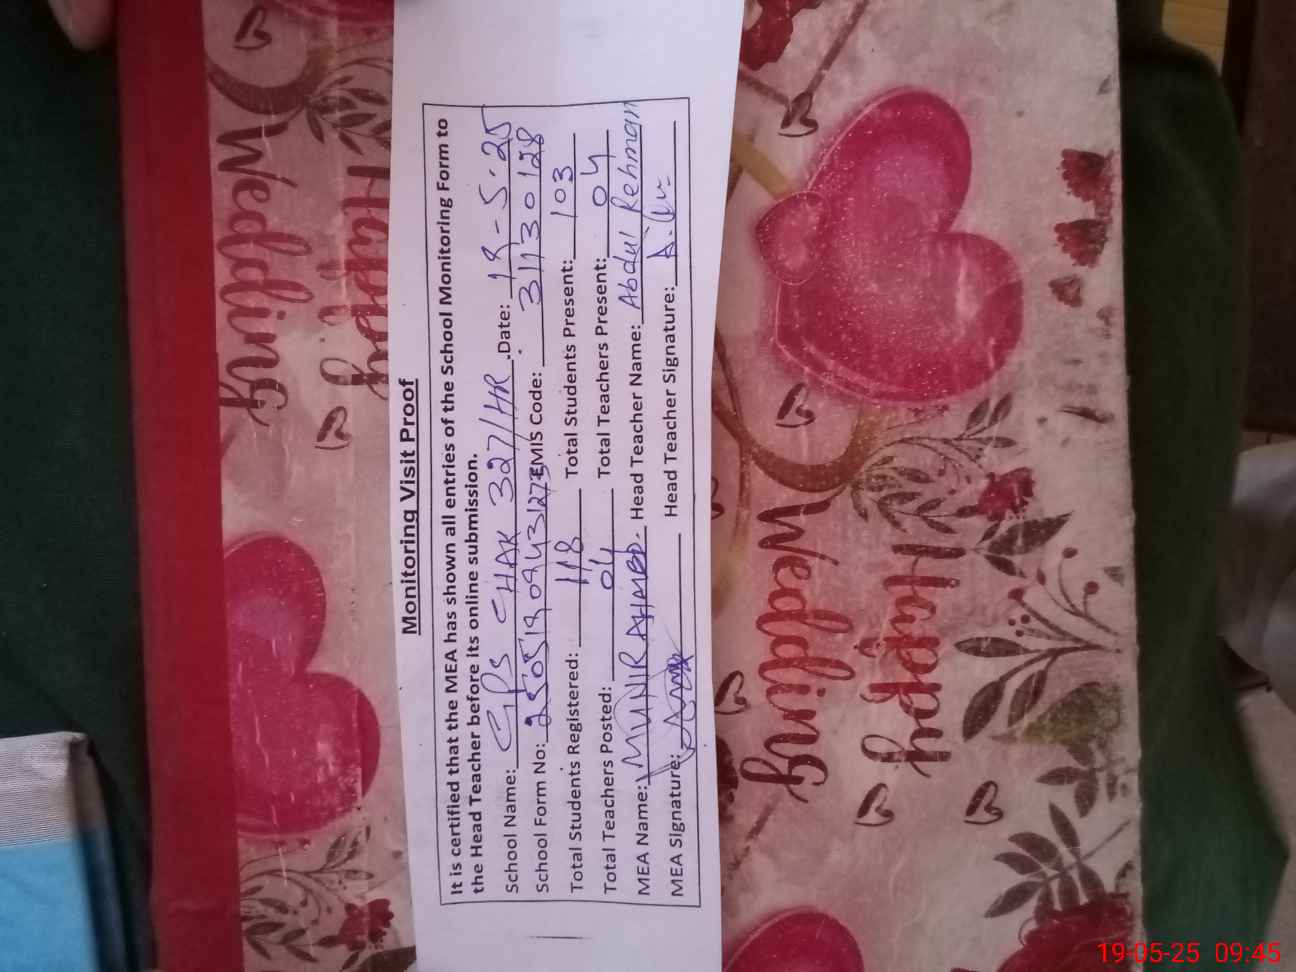 Monitoring Visit Proof
It is certified that the MEA has shown all entries of the School Monitoring Form to
the Head Teacher before its online submission.
School Name: GPS CHAK 327/HR .Date: 19-5-25
School Form No: EMIS Code: 31130128
Total Students Registered: 118 Total Students Present: 103
Total Teachers Posted: 04 Total Teachers Present: 04
MEA Name: MUNIR AHMED. Head Teacher Name: Abdul Rehman
MEA Signature: Head Teacher Signature:
Happy
Wedding
Happy
Wedding
19-05-25 09:45